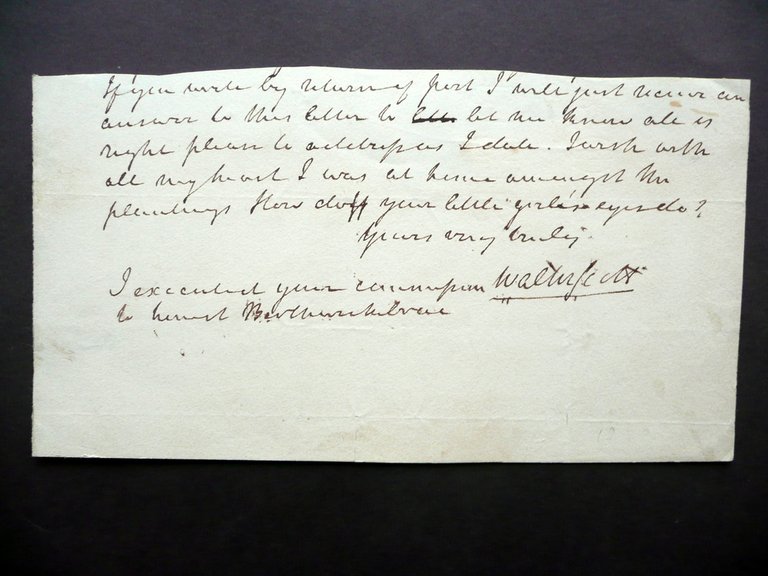 If you write by return of post I will just receive an
answer to this letter to let me know all is
right please to address as I date. I wish with
all my heart I was at home amongst the
plantings How do your little girlie's eyes do?
Yours very truly
I executed your commission Walter Scott
to honest